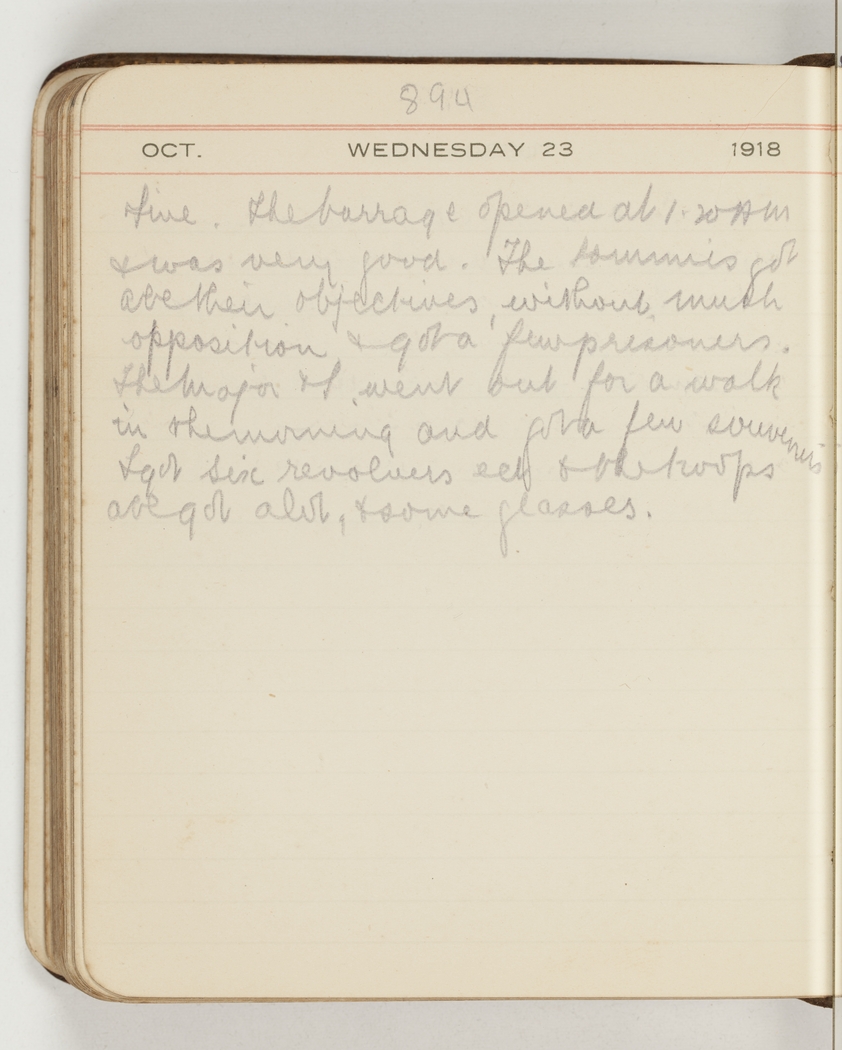 894
OCT. WEDNESDAY 23 1918
live. The barrage opened at 1.20 AM
& was very good. The tommies got
all their objectives, without much
opposition & got a few prisoners.
The Major & I went out for a walk
in the morning and got a few souvenirs
I got six revolvers & the troops
all got a lot, & some glasses.